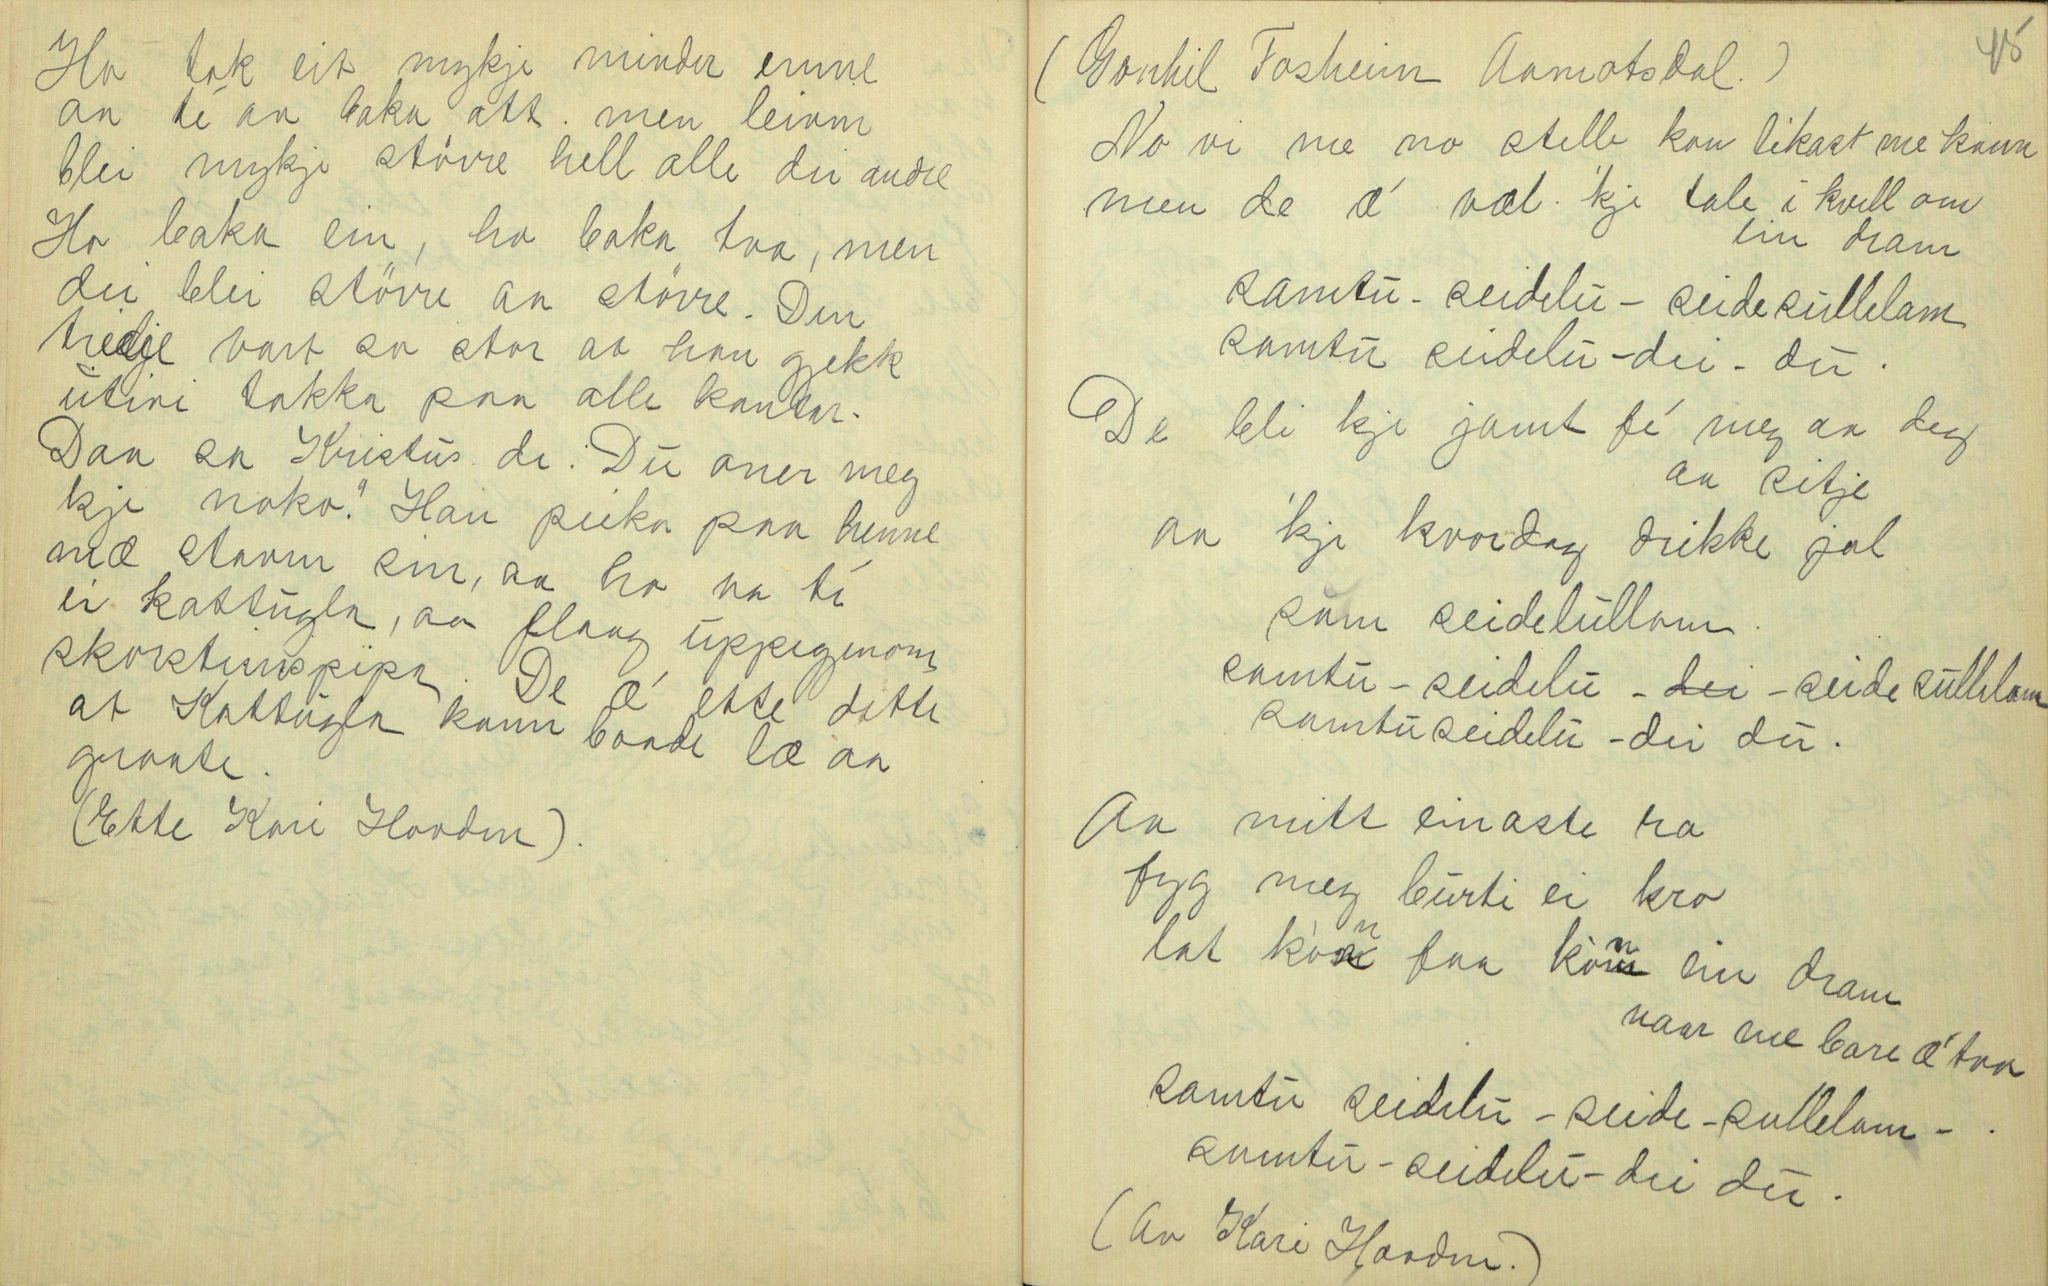 Ho tok eit mykje minder emne
aa te aa baka att. men leivin
blei mykje större hell alle dei andre
Ho baka ein, ho baka tvo, men
dei blei större aa större. Den
tredje vart so stor at han gjekk
ūtivi takka paa alle kantar.
Daa sa Kristūs de: Dū aner meg
kje noko." Han peika paa henne
mæ staven sin, aa ho va te
ei kattūgla, aa flaug ūppegjenom
skorsteinspipa. De æ' ette dette
at Kattūgla kann baade læ aa
graate.
(Ette Kari Hovden).
45
(Gonhil Fosheim Aamotsdal.)
No vi me no stelle kon likast me kann
men de æ' væl 'kje tale i kvell om
ein dram
samtū - seidelū - seidesūllelam
samtū seidelū - dei - dū.
De bli kje jamt fe' meg aa deg
aa sitje
aa 'kje kvordag drikke jol
sam seidelūllam
samtū - seidelū - dei - seidesūllelam
samtū seidelū - dei dū.
Aa mitt einaste ra
fyg meg būrti ei kro
lat kònn faa kònn ein dram
naar me bare æ' tvo
samtū seidelū - seide - sullelam -
samtū - seidelū - dei dū.
(Av Kari Hovden.)